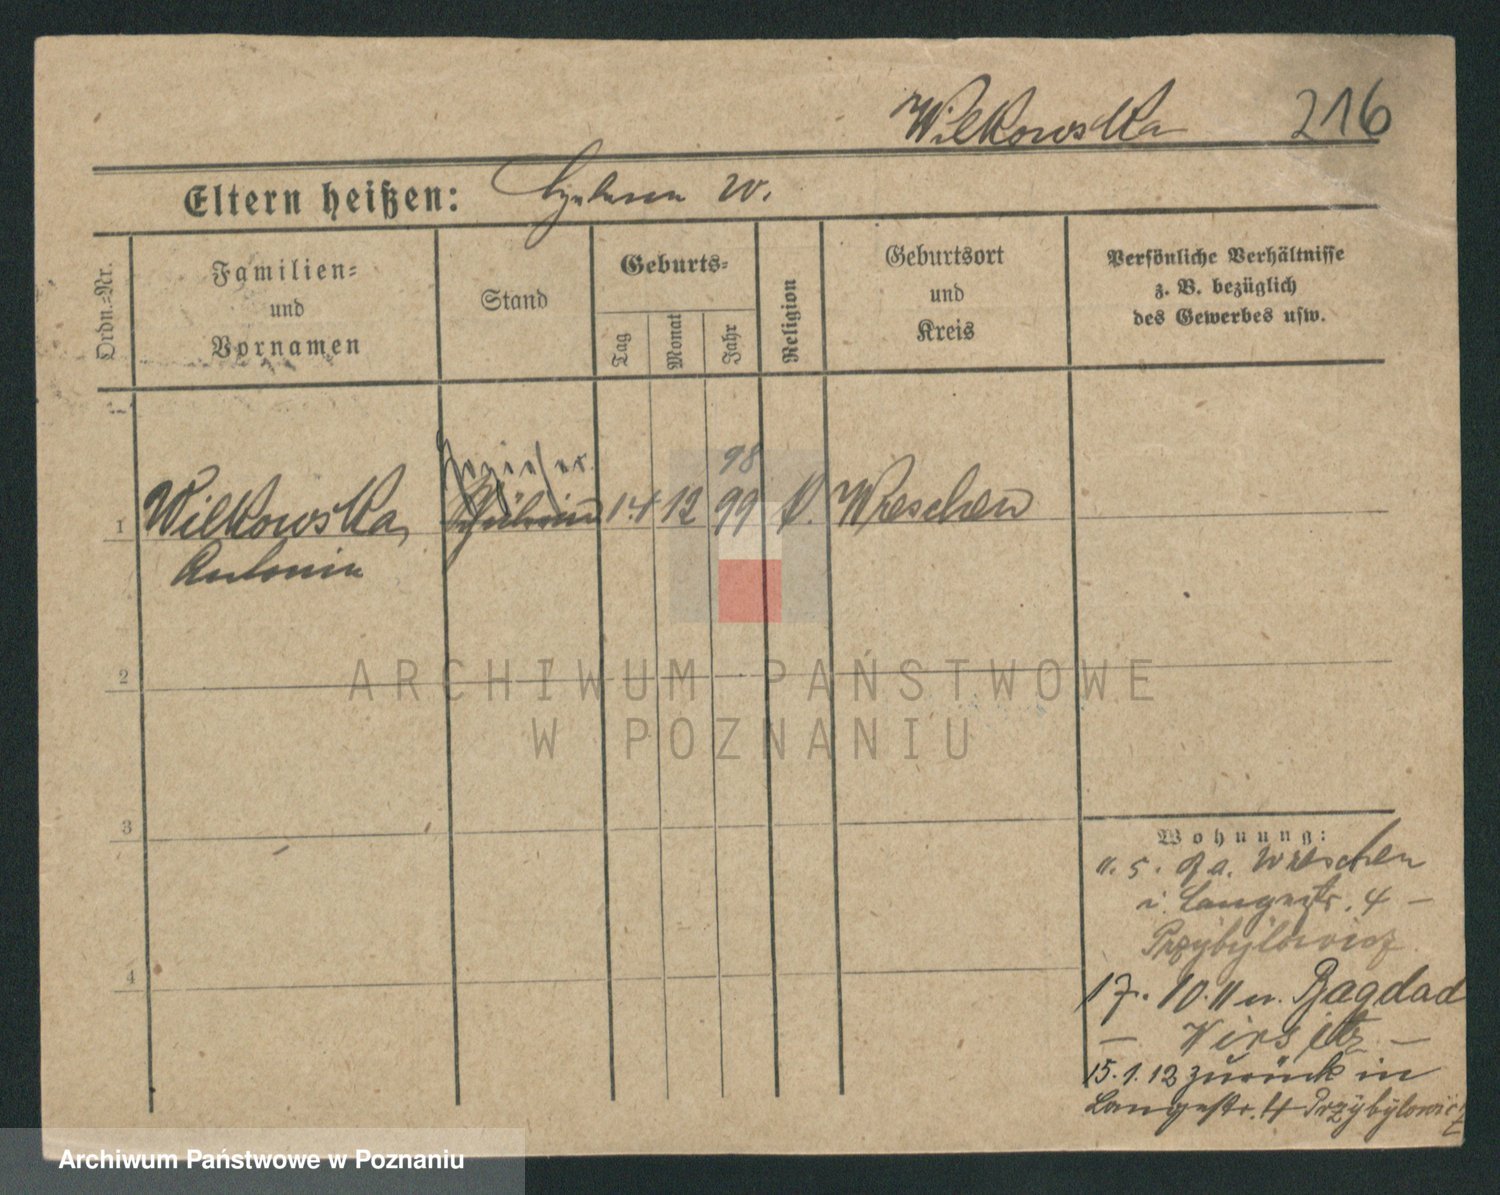 Wilkowska 216
Eltern heißen: W.
Ordn.-Nr.
Familien-
und
Vornamen
Stand
Geburts-
Tag
Monat
Jahr
Religion
Geburtsort
und
Kreis
Persönliche Verhältnisse
z. B. bezüglich
des Gewerbes usw.
98
1 Wilkowska, 14 12 99 k. Wreschen
Antonie
2
ARCHIWUM PAŃSTWOWE
W POZNANIU
3
4
Wohnung:
11. 5. Wreschen
i. Langestr. 4 –
Przybylowicz
17. 10. 11 n. Bagdad
– Wirsitz –
15. 1. 12 zurück in
Langestr. 4 Przybylowicz
Archiwum Państwowe w Poznaniu